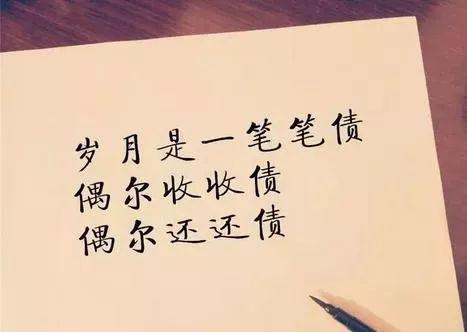 岁月是一笔笔债
偶尔收收债
偶尔还还债